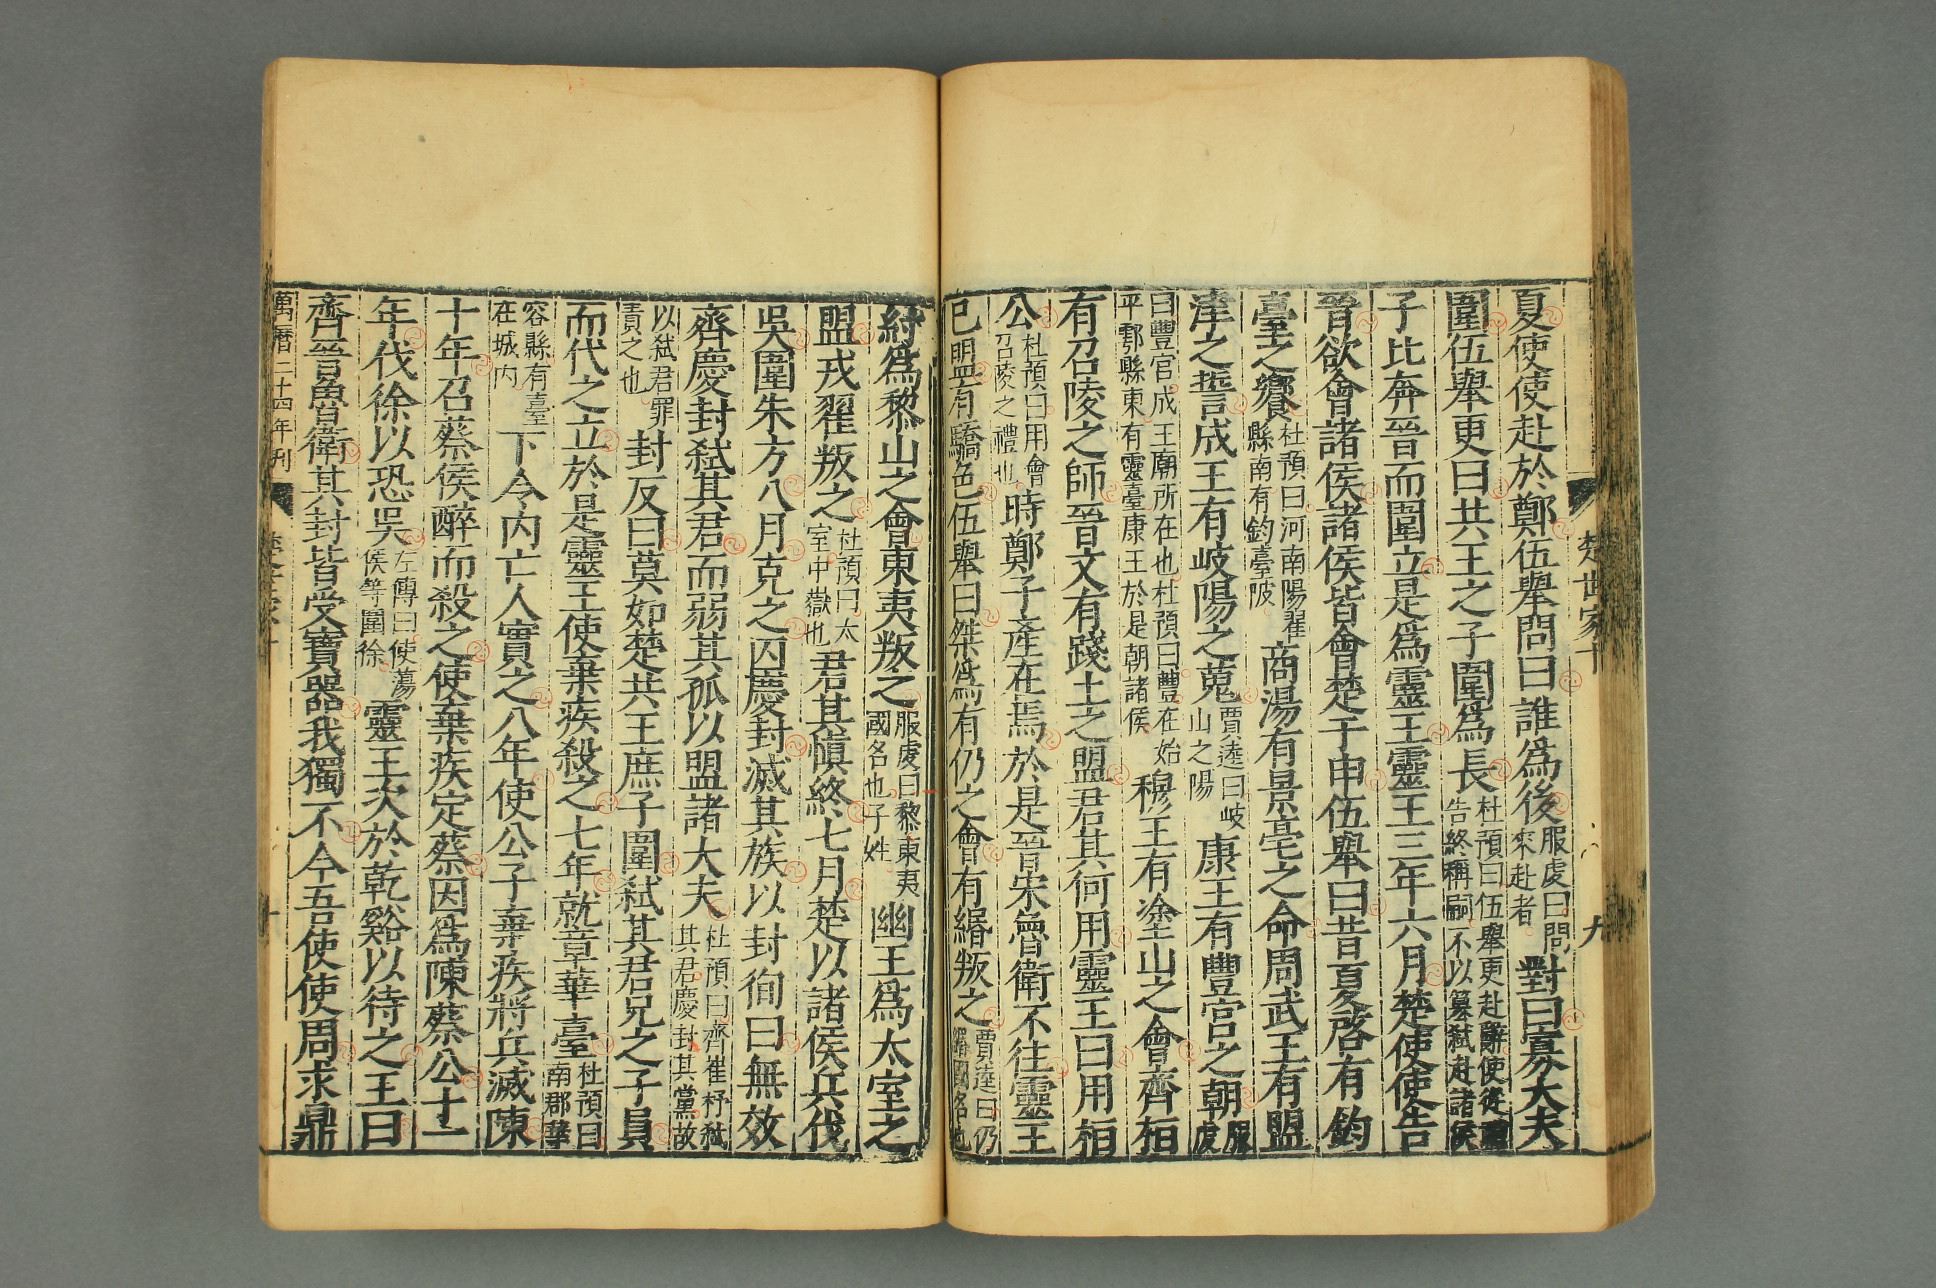 夏使使赴於鄭伍舉問曰誰爲後服虔曰問來赴者對曰寡大夫
圍伍舉更曰共王之子圍爲長杜預曰伍舉更赴辭使從禮告終稱嗣不以篡弑赴諸侯
子比奔晉而圍立是爲靈王靈王三年六月楚使使告
晉欲會諸侯諸侯皆會楚于申伍舉曰昔夏啓有鈞
臺之饗杜預曰河南陽翟縣南有鈞臺陂商湯有景亳之命周武王有盟
津之誓成王有岐陽之蒐賈逵曰岐山之陽康王有豐宮之朝服虔
曰豐宮成王廟所在也杜預曰豐在始平鄠縣東有靈臺康王於是朝諸侯穆王有塗山之會齊桓
有召陵之師晉文有踐土之盟君其何用靈王曰用桓
公杜預曰用會召陵之禮也時鄭子產在焉於是晉宋魯衛不往靈王
已盟有驕色伍舉曰桀爲有仍之會有緡叛之賈逵曰仍緡國名也
紂爲黎山之會東夷叛之服虔曰黎東夷國名也子姓幽王爲太室之
盟戎翟叛之杜預曰太室中嶽也君其慎終七月楚以諸侯兵伐
吳圍朱方八月克之囚慶封滅其族以封徇曰無效
齊慶封弑其君而弱其孤以盟諸大夫杜預曰齊崔杼弑其君慶封其黨故
以弑君罪責之也封反曰莫如楚共王庶子圍弑其君兄之子員
而代之立於是靈王使棄疾殺之七年就章華臺杜預曰南郡華
容縣有臺在城内下令内亡人實之八年使公子棄疾將兵滅陳
十年召蔡侯醉而殺之使棄疾定蔡因爲陳蔡公十一
年伐徐以恐吳左傳曰使蕩侯等圍徐靈王次於乾谿以待之王曰
齊晉魯衛其封皆受寶器我獨不今吾使使周求鼎
萬曆二十四年刊
楚世家十
九